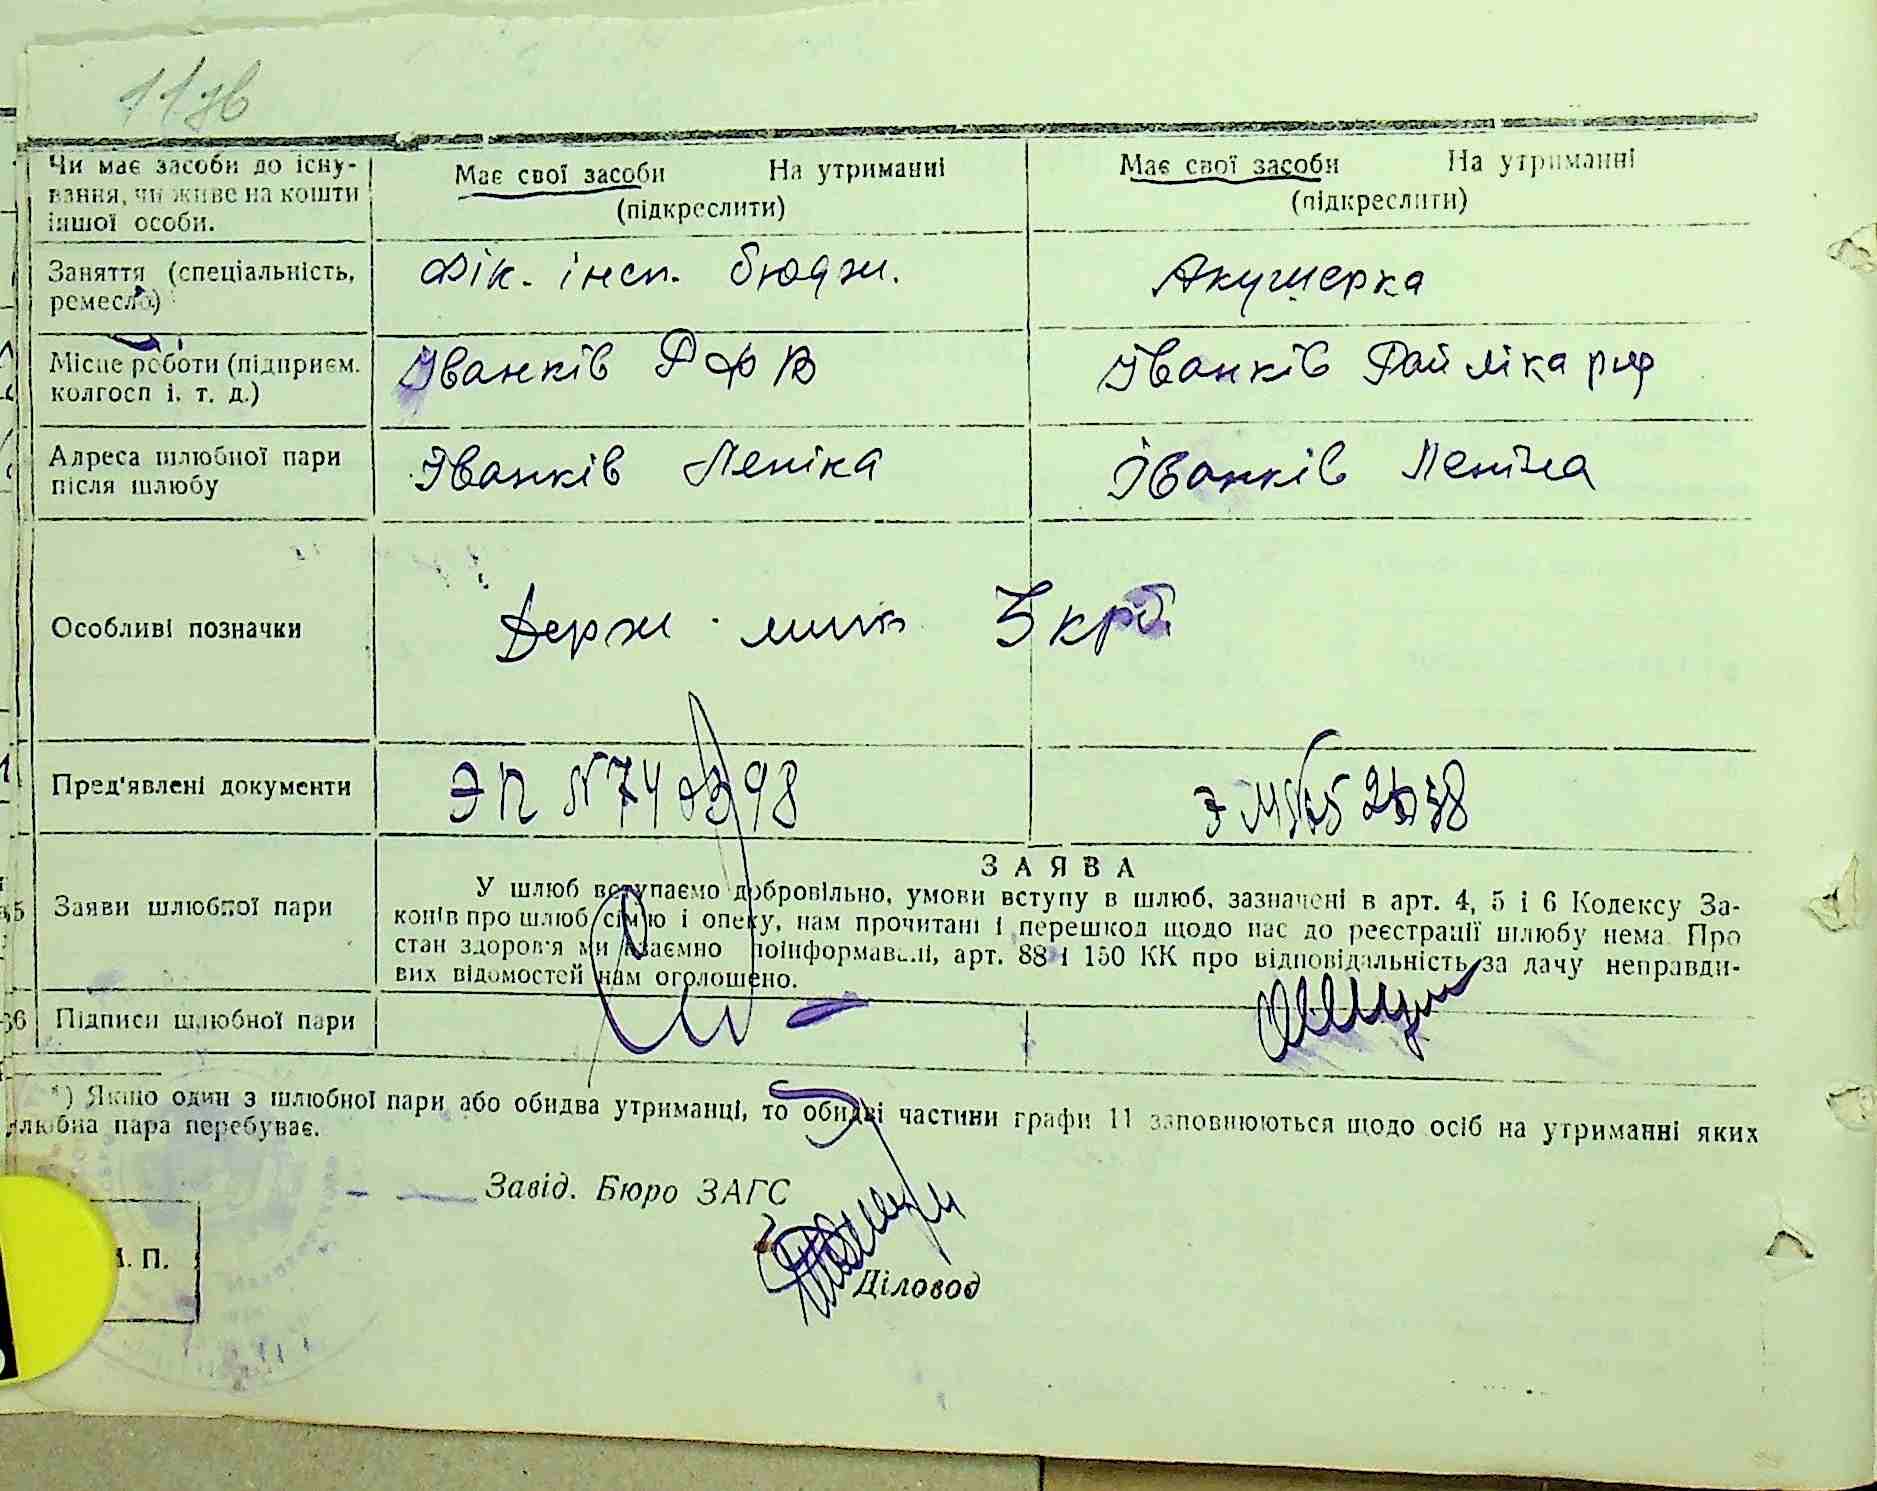 11зв
Чи має засоби до існу-
вання, чи живе на кошти
іншої особи.
Має свої засоби На утриманні
(підкреслити)
Має свої засоби На утриманні
(підкреслити)
Заняття (спеціальність,
ремесло)
Фін. інсп. бюдж.
Акушерка
Місце роботи (підприєм.
колгосп і. т. д.)
Іванків РФВ
Іванків Райлікарня
Адреса шлюбної пари
після шлюбу
Іванків Леніна
Іванків Леніна
Особливі позначки
Держ. мито 5 крб.
Пред'явлені документи
ЭП №
Заяви шлюбної пари
ЗАЯВА
У шлюб вступаємо добровільно, умови вступу в шлюб, зазначені в арт. 4, 5 і 6 Кодексу За-
конів про шлюб сім'ю і опеку, нам прочитані і перешкод щодо нас до реєстрації шлюбу нема. Про
стан здоров'я ми взаємно поінформавалі, арт. 88 і 150 КК про відповідальність за дачу неправди-
вих відомостей нам оголошено.
Підписи шлюбної пари
*) Якщо один з шлюбної пари або обидва утриманці, то обидві частини графи 11 заповнюються щодо осіб на утриманні яких
шлюбна пара перебуває.
Завід. Бюро ЗАГС
М. П.
Діловод